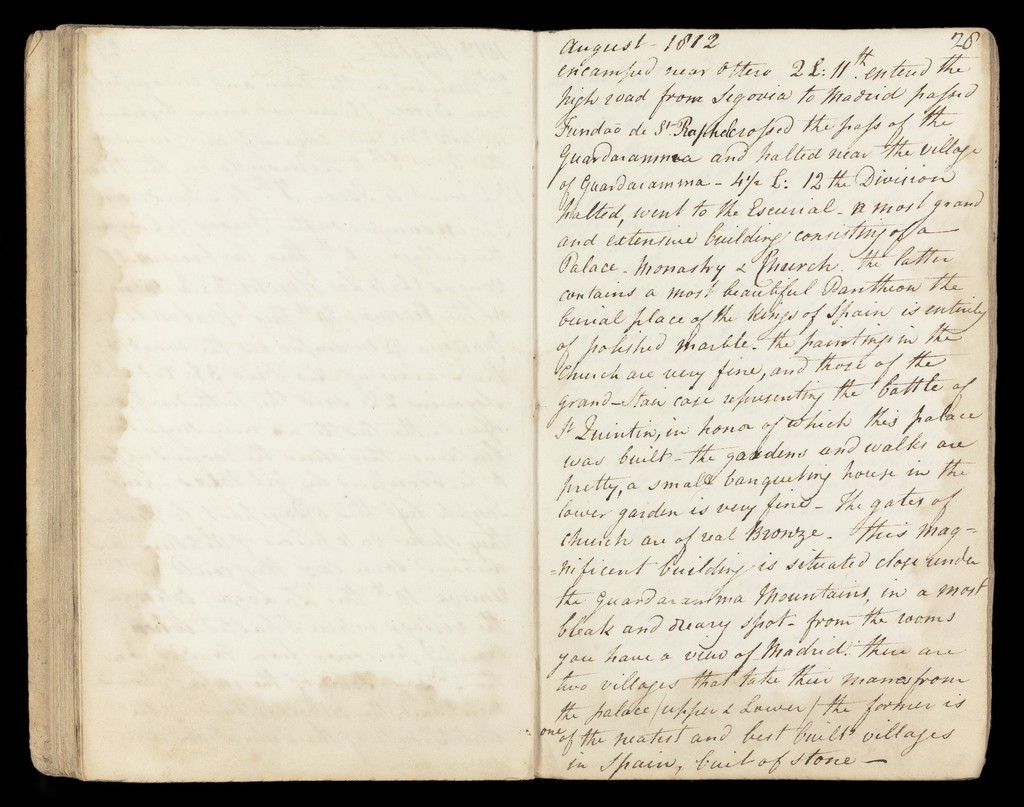 August - 1812 28
encamped near Ottero 2 L: 11th. entered the
high road from Segovia to Madrid passed
Fundaõ de St. Raphel crossed the pass of the
Guardaramma and halted near the village
of Guardaramma - 4½ L: 12 the Division
halted, went to the Escurial - a most grand
and extensive building consisting of a
Palace - Monastry & Church. the latter
contains a most beautiful Pantheon the
burial place of the Kings of Spain is entirely
of polished marble. the paintings in the
Church are very fine, and those of the
grand-Stair case representing the battle of
St. Quintin, in honor of which this palace
was built - the gardens and walks are
pretty, a small banqueting house in the
lower garden is very fine - the gates of
church are of real Bronze - this mag-
-nificent building is situated close under
the Guardaramma Mountains, in a most
bleak and dreary spot - from the rooms
you have a view of Madrid. there are
two villages that take their names from
the palace (upper & Lower) the former is
one of the neatest and best built villages
in Spain, built of stone -